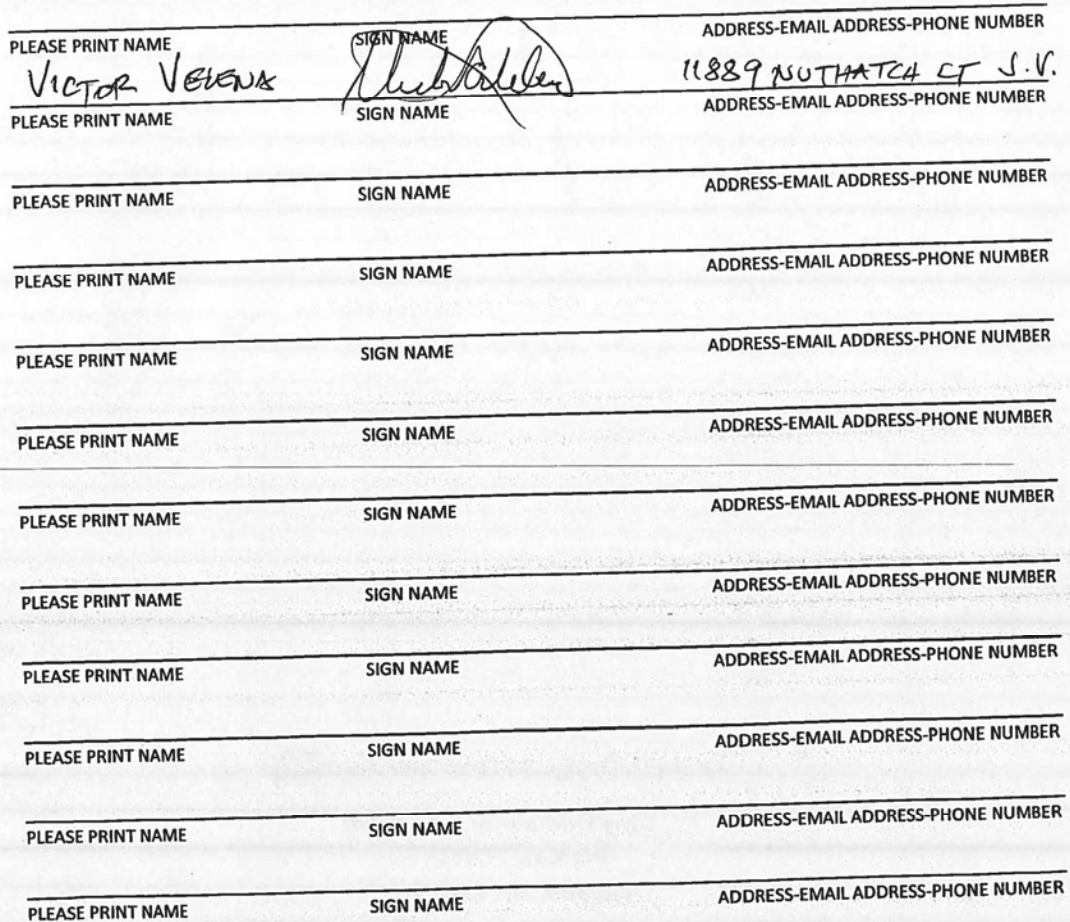 PLEASE PRINT NAME SIGN NAME ADDRESS-EMAIL ADDRESS-PHONE NUMBER
VICTOR VELENA 11889 NUTHATCH CT J.V.
PLEASE PRINT NAME SIGN NAME ADDRESS-EMAIL ADDRESS-PHONE NUMBER
PLEASE PRINT NAME SIGN NAME ADDRESS-EMAIL ADDRESS-PHONE NUMBER
PLEASE PRINT NAME SIGN NAME ADDRESS-EMAIL ADDRESS-PHONE NUMBER
PLEASE PRINT NAME SIGN NAME ADDRESS-EMAIL ADDRESS-PHONE NUMBER
PLEASE PRINT NAME SIGN NAME ADDRESS-EMAIL ADDRESS-PHONE NUMBER
PLEASE PRINT NAME SIGN NAME ADDRESS-EMAIL ADDRESS-PHONE NUMBER
PLEASE PRINT NAME SIGN NAME ADDRESS-EMAIL ADDRESS-PHONE NUMBER
PLEASE PRINT NAME SIGN NAME ADDRESS-EMAIL ADDRESS-PHONE NUMBER
PLEASE PRINT NAME SIGN NAME ADDRESS-EMAIL ADDRESS-PHONE NUMBER
PLEASE PRINT NAME SIGN NAME ADDRESS-EMAIL ADDRESS-PHONE NUMBER
PLEASE PRINT NAME SIGN NAME ADDRESS-EMAIL ADDRESS-PHONE NUMBER